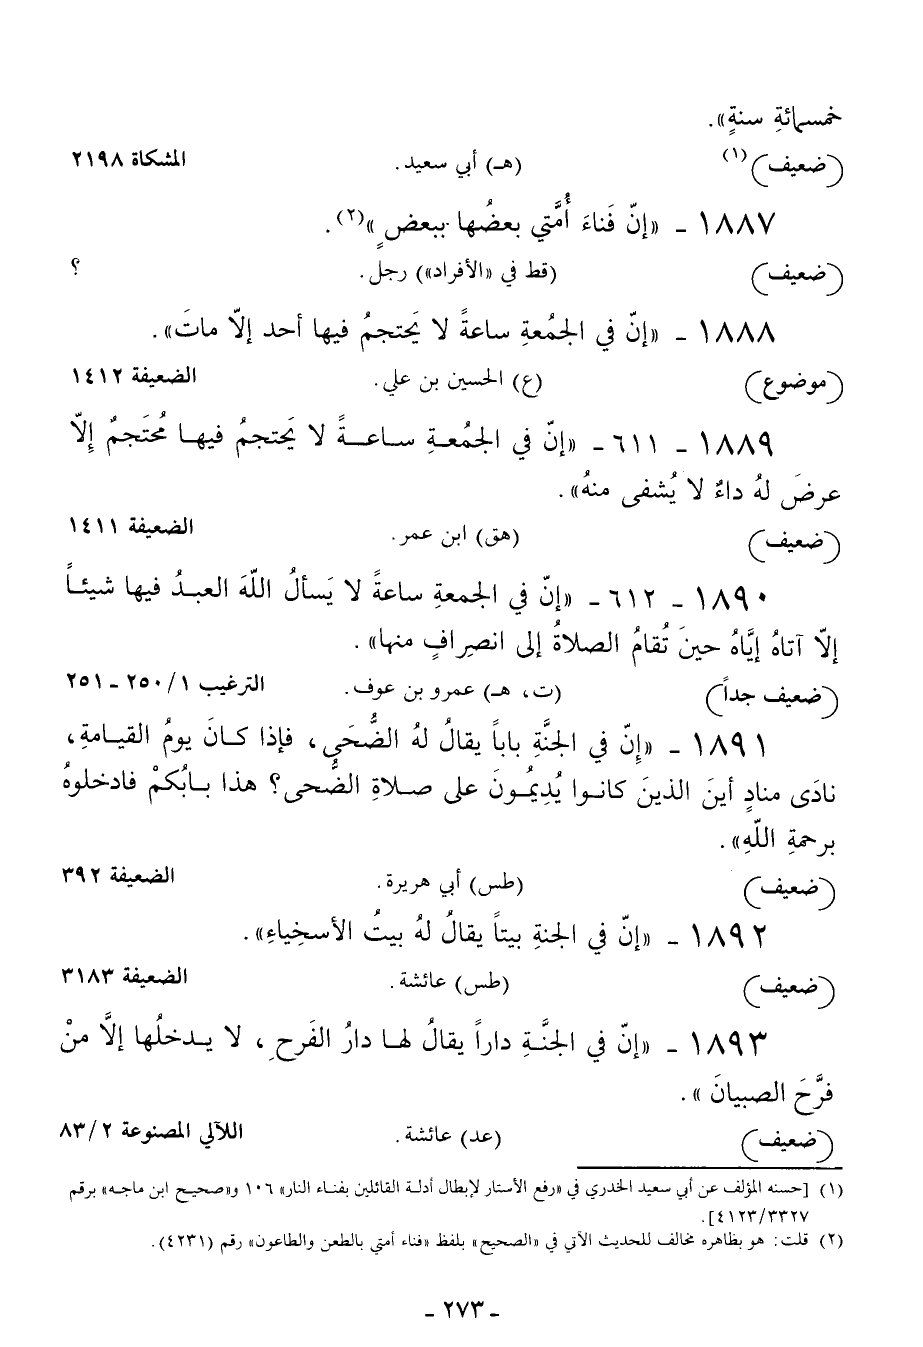 خمسمائةِ سنةٍ».
(ضعيف)(١) (هـ) أبي سعيد. المشكاة ٢١٩٨
١٨٨٧ ـ «إنّ فَناءَ أُمَّتي بعضُها ببعضٍ»(٢).
(ضعيف) (قط في «الأفراد») رجل. ؟
١٨٨٨ ـ «إنّ في الجمُعةِ ساعةً لا يَحتجمُ فيها أحد إلاّ ماتَ».
(موضوع) (ع) الحسين بن علي. الضعيفة ١٤١٢
١٨٨٩ ـ ٦١١ ـ «إنّ في الجمُعةِ ساعةً لا يَحتجمُ فيها مُحتَجمٌ إلاّ
عرضَ لهُ داءٌ لا يُشفى منهُ».
(ضعيف) (هق) ابن عمر. الضعيفة ١٤١١
١٨٩٠ ـ ٦١٢ ـ «إنّ في الجمعةِ ساعةً لا يَسألُ اللّهَ العبدُ فيها شيئاً
إلاّ آتاهُ إيَّاهُ حينَ تُقامُ الصلاةُ إلى انصِرافٍ منها».
(ضعيف جداً) (ت، هـ) عمرو بن عوف. الترغيب ١/ ٢٥٠ ـ ٢٥١
١٨٩١ ـ «إنّ في الجنَّةِ باباً يقالُ لهُ الضُّحَى، فإذا كانَ يومُ القيامةِ،
نادَى منادٍ أينَ الذينَ كانوا يُدِيمُونَ على صلاةِ الضُّحى؟ هذا بابُكمْ فادخلوهُ
برحمةِ اللّهِ».
(ضعيف) (طس) أبي هريرة. الضعيفة ٣٩٢
١٨٩٢ ـ «إنّ في الجنةِ بيتاً يقالُ لهُ بيتُ الأسخِياءِ».
(ضعيف) (طس) عائشة. الضعيفة ٣١٨٣
١٨٩٣ ـ «إنّ في الجنَّةِ داراً يقالُ لها دارُ الفَرحِ، لا يدخلُها إلاَّ منْ
فرَّحَ الصبيانَ».
(ضعيف) (عد) عائشة. اللآلي المصنوعة ٢/ ٨٣
(١) [حسنه المؤلف عن أبي سعيد الخدري في «رفع الأستار لإبطال أدلة القائلين بفناء النار» ١٠٦ و«صحيح ابن ماجه» برقم
٤١٢٣/٣٣٢٧].
(٢) قلت: هو بظاهره مخالف للحديث الآتي في «الصحيح» بلفظ «فناء أمتي بالطعن والطاعون» رقم (٤٢٣١).
ـ ٢٧٣ ـ